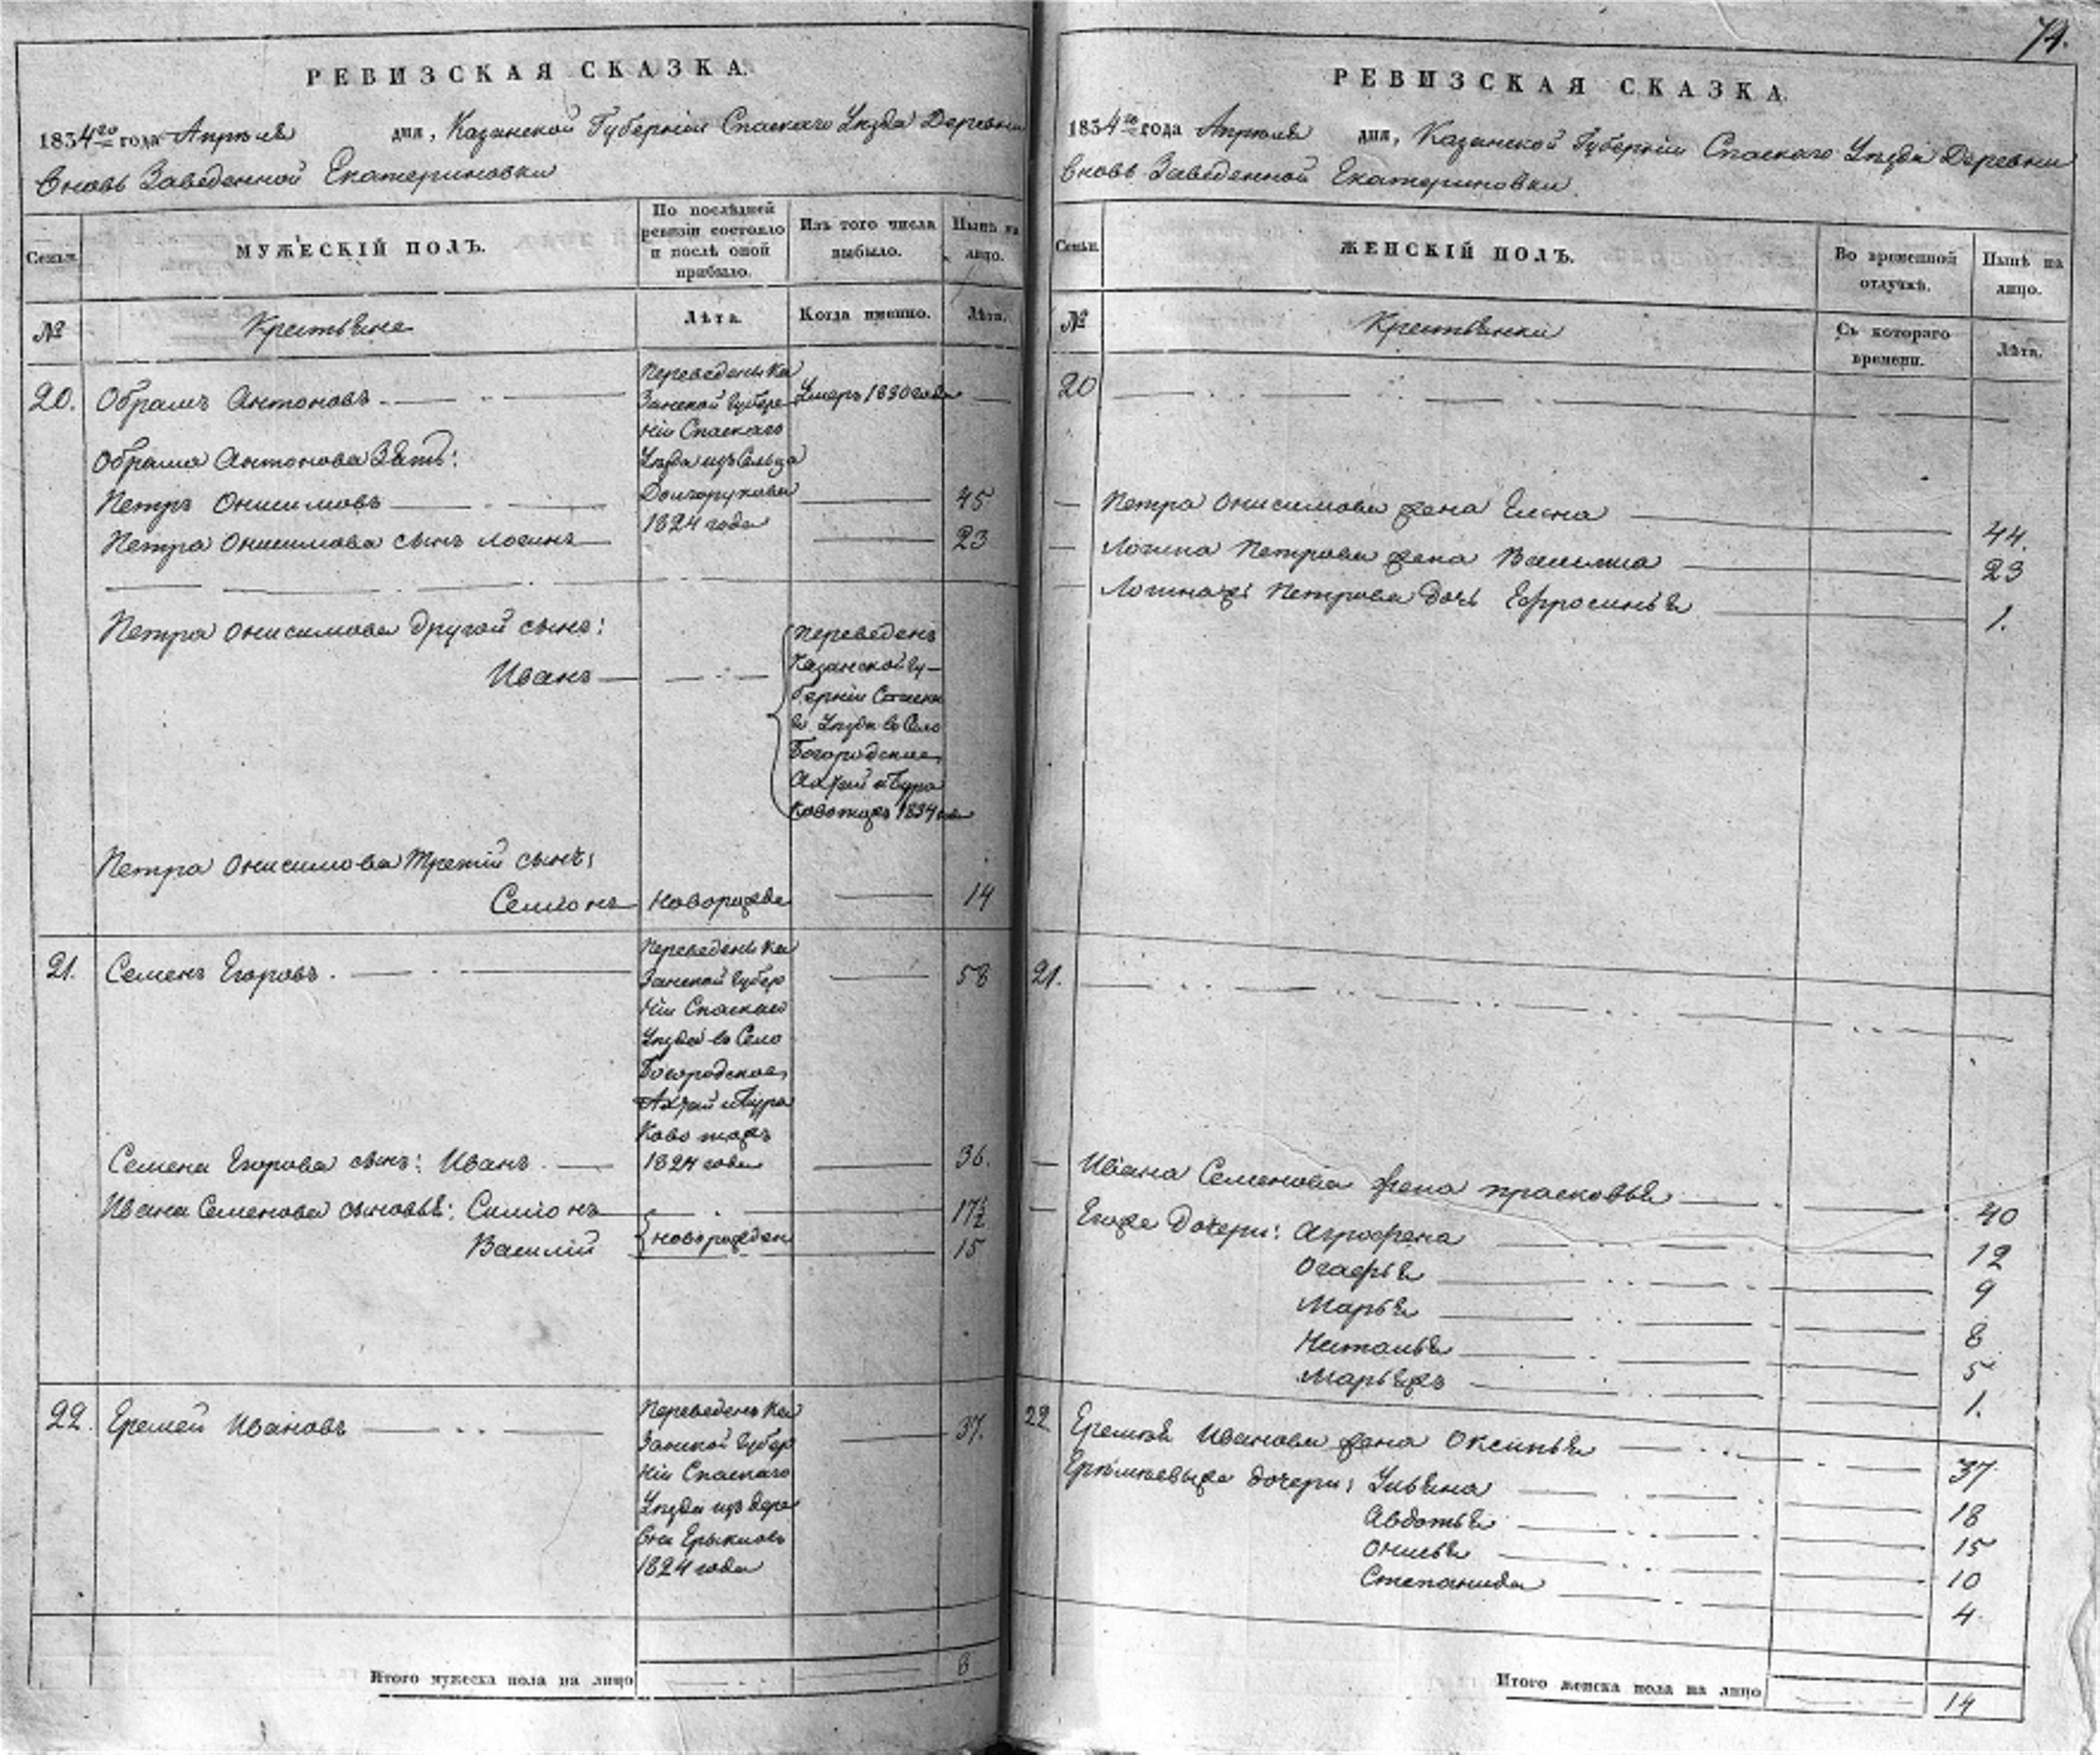 РЕВИЗСКАЯ СКАЗКА.
1834го года Апреля дня, Казанской Губернiи Спаскаго Уезда Деревни
вновь Заведенной Екатериновки
Семьи. МУЖЕСКIЙ ПОЛЪ. По послѣдней ревизiи состояло и послѣ оной прибыло. Изъ того числа выбыло. Нынѣ на лицо.
№ Крестьяне Лѣта. Когда именно. Лѣта.
20. Обрамъ Антоновъ Умеръ 1830 года
Переведены Ка
занской Губер
нiи Спаскаго
Уезда изъ Сельца
Долгорукова
1824 года
Обрама Антонова Зять:
Петръ Онисимовъ 45
Петра Онисимова сынъ Логинъ 23
Петра Онисимова другой сынъ:
Иванъ
Переведенъ
Казанской Гу-
бернiи Спаска
го Уезда въ Село
Богородское
1834 года
Петра Онисимова Третiй сынъ:
Семiонъ новорожде 14
21. Семенъ Егоровъ. 58
Переведены Ка
занской Губер
нiи Спаскаго
Уезда въ Село
Богородское
1824 года
Семена Егорова сынъ: Иванъ 36.
Ивана Семенова сыновья: Симiонъ 17½
Василiй новорожден 15
22. Еремей Ивановъ 37.
Переведенъ Ка
занской Губер
нiи Спаскаго
Уезда изъ дере
вни
1824 года
Итого мужеска пола на лицо 8
74.
РЕВИЗСКАЯ СКАЗКА
1834го года Апреля дня, Казанской Губернiи Спаскаго Уезда Деревни
вновь Заведенной Екатериновки.
Семьи. ЖЕНСКIЙ ПОЛЪ. Во временной отлучкѣ. Нынѣ на лицо.
№ Крестьянки Съ котораго времени. Лѣта.
20
Петра Онисимова жена Елена 44.
Логина Петрова жена Василиса 23
Логинажъ Петрова дочь Ефросинья 1.
21.
Ивана Семенова жена Прасковья 40
Егоже Дочери: Агрофена 12
Огафья 9
Марья 8
Наталья 5
Марьяжъ 1.
22 Еремея Иванова жена Оксинья 37
дочери: Ульяна 18
Авдотья 15
Онисья 10
Степанида 4
Итого женска пола на лицо 14